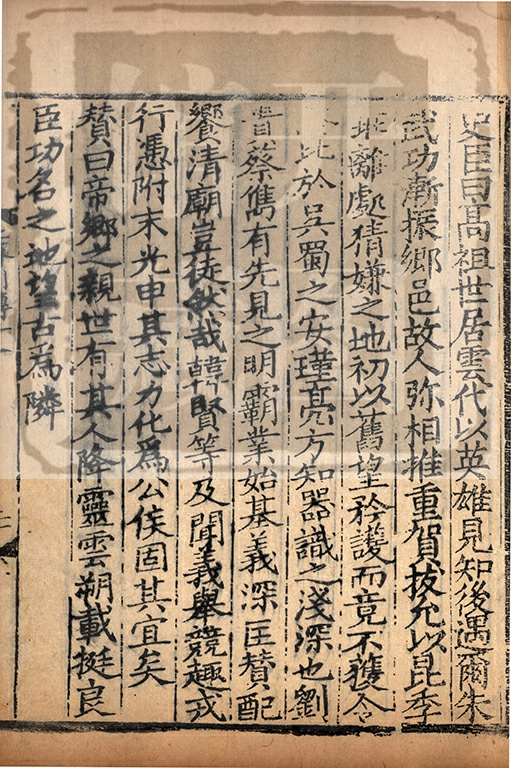 史臣曰高祖世居雲代以英雄見知後遇爾朱
武功漸振鄉邑故人弥相推重賀拔允以昆季
乖離處猜嫌之地初以舊望矜護而竟不獲令
比於吳蜀之安瑾亮方知器識之淺深也劉
貴蔡儁有先見之明霸業始基義深匡贊配
饗清廟豈徒然哉韓賢等及聞義舉競趣戎
行憑附末光申其志力化為公侯固其宜矣
贊曰帝鄉之親世有其人降靈雲朔載挺良
臣功名之地望古為隣